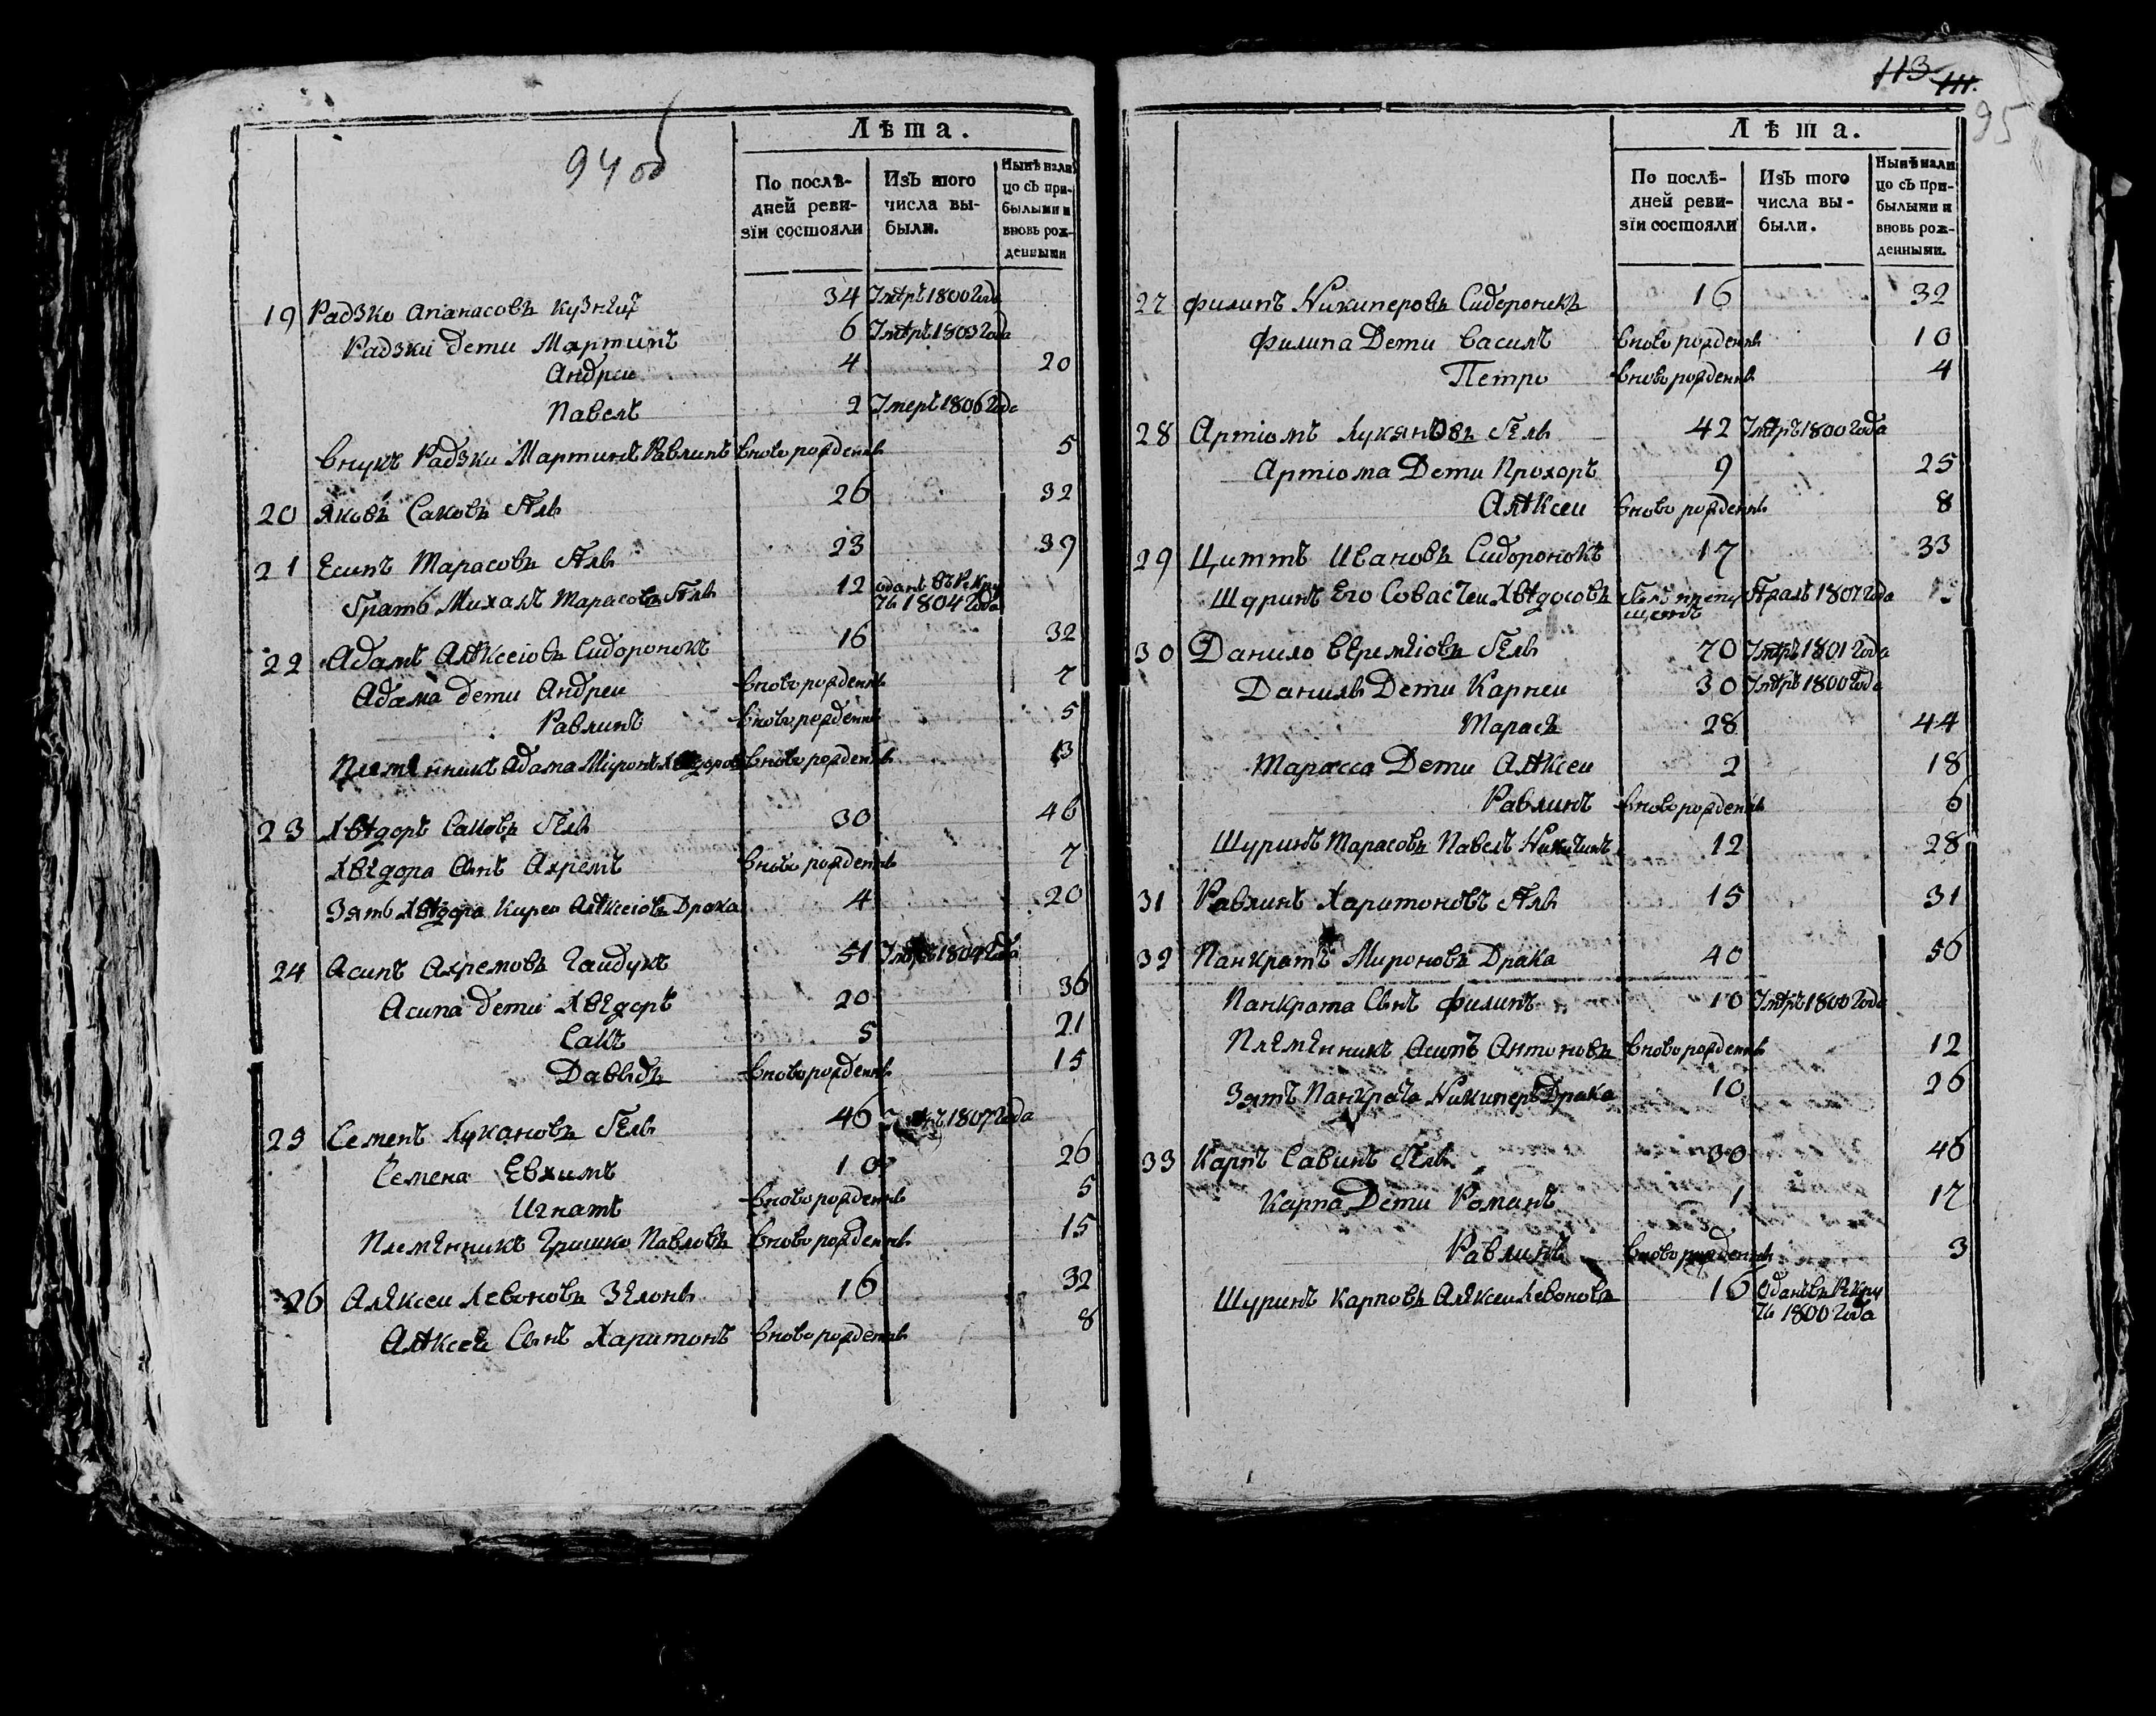 94 об
Лѣта.
По послѣ-
дней реви-
зїи состояли
Изъ того
числа вы-
были.
Нынѣ нали
цо съ при-
былыми и
вновь рож-
денными
19 Радзко Апанасовъ Кузнѣц 34 Умеръ 1800 Года
Радзки дети Мартинъ 6 Умеръ 1803 Года
Андреи 4 20
Павелъ 2 Умеръ 1806 Года
Внукъ Радзки Мартинъ Равлинъ вново рожденъ 5
20 Яковъ Саковъ 26 32
21 Есипъ Тарасовъ 23 39
братъ Михалъ Тарасовъ 12 оданъ въ рекру
ты 1804 Года
22 Адамъ Алѣксеіовъ Сидоронокъ 16 32
Адама дети Андреи вново рожденъ 7
Равлинъ вново рожденъ 5
Племѣнникъ Адама Миронъ Хвѣдоровъ вново рожденъ 13
23 Хвѣдоръ Сацовъ 30 46
Хвѣдора Сынъ Ахремъ вново рожденъ 7
Зять Хвѣдора Кирео Алѣксеіовъ Драка 4 20
24 Асипъ Ахремовъ Гаидукъ 51 Умеръ 1804 Года
Асипа дети Хвѣдоръ 20 36
Сацъ 5 21
Давыдъ вново рожденъ 15
25 Семенъ Лукановъ 46 1807 Года
Семена Евхимъ 10 26
Игнатъ вново рожденъ 5
Племѣнникъ Гришко Павловъ вново рожденъ 15
26 Алѣксеи Левоновъ Зѣлонь 16 32
Алѣксея Сынъ Харитонъ вново рожденъ 8
113 111.
95
Лѣта.
По послѣ-
дней реви-
зїи состояли
Изъ того
числа вы-
были.
Нынѣ нали
цо съ при-
былыми и
вновь рож-
денными.
27 Филипъ Никиперовъ Сидоронокъ 16 32
Филипа Дети Василъ вново рожденъ 10
Петро вново рожденъ 4
28 Артіомъ Лукяновъ 42 Умеръ 1800 Года
Артіома Дети Прохоръ 9 25
Алѣксеи вново рожденъ 8
29 Циттъ Ивановъ Сидоронокъ 17 33
Шуринъ Его Совасѣи Хвѣдосовъ 1807 Года
30 Данило Евремѣіовъ 70 Умеръ 1801 Года
Данилы Дети Карпеи 30 Умеръ 1800 Года
Тарасъ 28 44
Тарасса Дети Алѣксеи 2 18
Равлинъ вново рожденъ 6
Шуринъ Тарасовъ Павелъ Никитинъ 12 28
31 Равлинъ Харитоновъ 15 31
32 Панкратъ Мироновъ Драка 40 56
Панкрата Сынъ Филипъ 10 Умеръ 1800 Года
Племѣнникъ Асипъ Антоновъ вново рожденъ 12
Зять Панкрата Никиперъ Драка 10 26
33 Карпъ Савинъ 30 46
Карпа Дети Романъ 1 17
Равлинъ вново рожденъ 3
Шуринъ Карповъ Алѣксеи Левоновъ 16 Оданъ въ рекру
ты 1800 Года